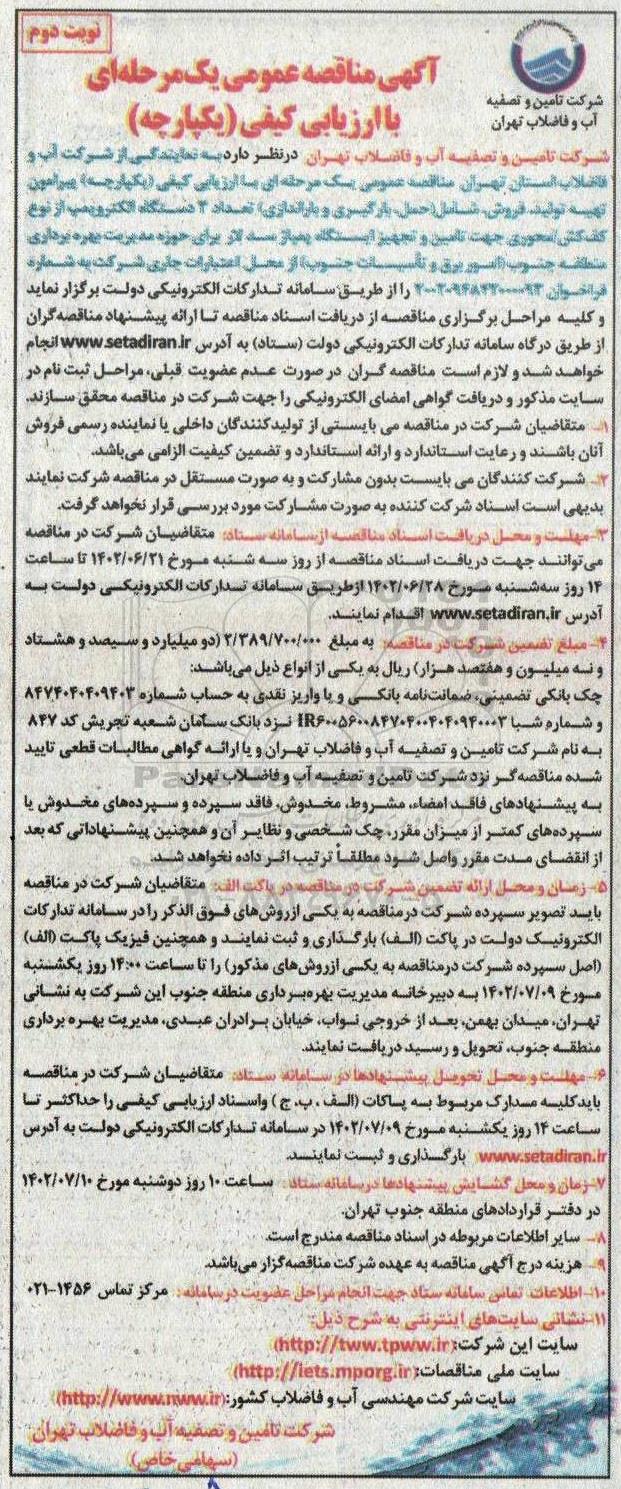 نوبت دوم
شرکت تامین و تصفیه
آب و فاضلاب تهران
آگهی مناقصه عمومی یک مرحله‌ای
با ارزیابی کیفی (یکپارچه)
شرکت تامین و تصفیه آب و فاضلاب تهران درنظر دارد به نمایندگی از شرکت آب و
فاضلاب استان تهران مناقصه عمومی یک مرحله ای با ارزیابی کیفی (یکپارچه) پیرامون
تهیه تولید، فروش، شامل(حمل، بارگیری و باراندازی) تعداد ۲ دستگاه الکتروپمپ از نوع
کف‌کش/محوری جهت تامین و تجهیز ایستگاه پمپاژ سه لاتر برای حوزه مدیریت بهره برداری
منطقه جنوب(امور برق و تأسیسات جنوب) از محل اعتبارات جاری شرکت به شماره
فراخوان ۲۰۰۲۰۹۴۸۴۲۰۰۰۰۹۳ را از طریق سامانه تدارکات الکترونیکی دولت برگزار نماید
و کلیه مراحل برگزاری مناقصه از دریافت اسناد مناقصه تا ارائه پیشنهاد مناقصه‌گران
از طریق درگاه سامانه تدارکات الکترونیکی دولت (ستاد) به آدرس www.setadiran.ir انجام
خواهد شد و لازم است مناقصه گران در صورت عدم عضویت قبلی، مراحل ثبت نام در
سایت مذکور و دریافت گواهی امضای الکترونیکی را جهت شرکت در مناقصه محقق سازند.
۱- متقاضیان شرکت در مناقصه می بایستی از تولیدکنندگان داخلی یا نماینده رسمی فروش
آنان باشند و رعایت استاندارد و ارائه استاندارد و تضمین کیفیت الزامی می‌باشد.
۲- شرکت کنندگان می بایست بدون مشارکت و به صورت مستقل در مناقصه شرکت نمایند
بدیهی است اسناد شرکت کننده به صورت مشارکت مورد بررسی قرار نخواهد گرفت.
۳-مهلت و محل دریافت اسناد مناقصه از سامانه ستاد: متقاضیان شرکت در مناقصه
می‌توانند جهت دریافت اسناد مناقصه از روز سه شنبه مورخ ۱۴۰۲/۰۶/۲۱ تا ساعت
۱۴ روز سه‌شنبه مورخ ۱۴۰۲/۰۶/۲۸ ازطریق سامانه تدارکات الکترونیکی دولت به
آدرس www.setadiran.ir اقدام نمایند.
۴- مبلغ تضمین شرکت در مناقصه: به مبلغ ۲/۳۸۹/۷۰۰/۰۰۰ (دو میلیارد و سیصد و هشتاد
و نه میلیون و هفتصد هزار) ریال به یکی از انواع ذیل می‌باشد:
چک بانکی تضمینی، ضمانت‌نامه بانکی و یا واریز نقدی به حساب شماره ۸۴۷۴۰۴۰۴۰۹۴۰۳
و شماره شبا IR۶۰۰۵۶۰۰۸۴۷۰۴۰۰۴۰۴۰۹۴۰۰۰۳ نزد بانک سامان شعبه تجریش کد ۸۴۷
به نام شرکت تامین و تصفیه آب و فاضلاب تهران و یا ارائه گواهی مطالبات قطعی تایید
شده مناقصه‌گر نزد شرکت تامین و تصفیه آب و فاضلاب تهران.
به پیشنهادهای فاقد امضاء، مشروط، مخدوش، فاقد سپرده و سپرده‌های مخدوش یا
سپرده‌های کمتر از میزان مقرر، چک شخصی و نظایر آن و همچنین پیشنهاداتی که بعد
از انقضای مدت مقرر واصل شود مطلقاً ترتیب اثر داده نخواهد شد.
۵- زمان و محل ارائه تضمین شرکت در مناقصه در پاکت الف: متقاضیان شرکت در مناقصه
باید تصویر سپرده شرکت درمناقصه به یکی ازروش‌های فوق الذکر را در سامانه تدارکات
الکترونیک دولت در پاکت (الف) بارگذاری و ثبت نمایند و همچنین فیزیک پاکت (الف)
(اصل سپرده شرکت درمناقصه به یکی ازروش‌های مذکور) را تا ساعت ۱۴:۰۰ روز یکشنبه
مورخ ۱۴۰۲/۰۷/۰۹ به دبیرخانه مدیریت بهره‌برداری منطقه جنوب این شرکت به نشانی
تهران، میدان بهمن، بعد از خروجی نواب، خیابان برادران عبدی، مدیریت بهره برداری
منطقه جنوب، تحویل و رسید دریافت نمایند.
۶-مهلت و محل تحویل پیشنهادها در سامانه ستاد: متقاضیان شرکت در مناقصه
باید کلیه مدارک مربوط به پاکات (الف ، ب، ج ) و اسناد ارزیابی کیفی را حداکثر تا
ساعت ۱۴ روز یکشنبه مورخ ۱۴۰۲/۰۷/۰۹ در سامانه تدارکات الکترونیکی دولت به آدرس
www.setadiran.ir بارگذاری و ثبت نمایند.
۷-زمان و محل گشایش پیشنهادها درسامانه ستاد : ساعت ۱۰ روز دوشنبه مورخ ۱۴۰۲/۰۷/۱۰
در دفتر قراردادهای منطقه جنوب تهران.
۸- سایر اطلاعات مربوطه در اسناد مناقصه مندرج است.
۹- هزینه درج آگهی مناقصه به عهده شرکت مناقصه‌گزار می‌باشد.
۱۰-اطلاعات تماس سامانه ستاد جهت انجام مراحل عضویت در سامانه: مرکز تماس ۱۴۵۶-۰۲۱
۱۱-نشانی سایت‌های اینترنتی به شرح ذیل:
سایت این شرکت:(http://tww.tpww.ir)
سایت ملی مناقصات:(http://iets.mporg.ir)
سایت شرکت مهندسی آب و فاضلاب کشور:(http://www.nww.ir)
شرکت تامین و تصفیه آب و فاضلاب تهران
(سهامی خاص)